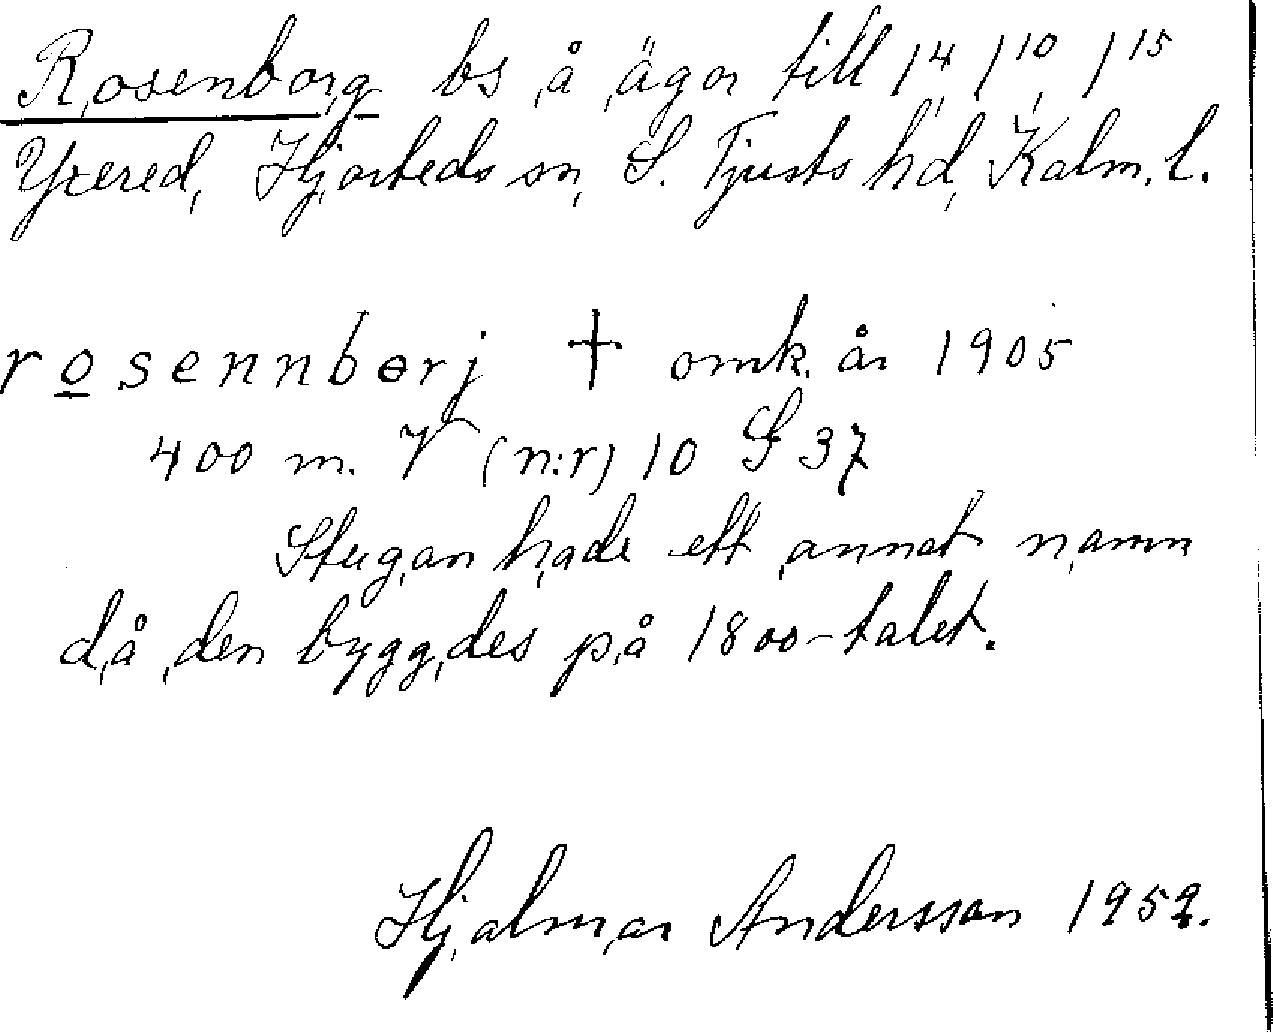 Rosenborg bs å ägor till 1⁴, 1¹⁰, 1¹⁵
Yxered, Hjorteds sn, S. Tjusts hd, Kalm. l.
rosennborj † omk. år 1905
400 m. V (n:r) 10 S 37
Stugan hade ett annat namn
då den byggdes på 1800-talet.
Hjalmar Andersson 1952.